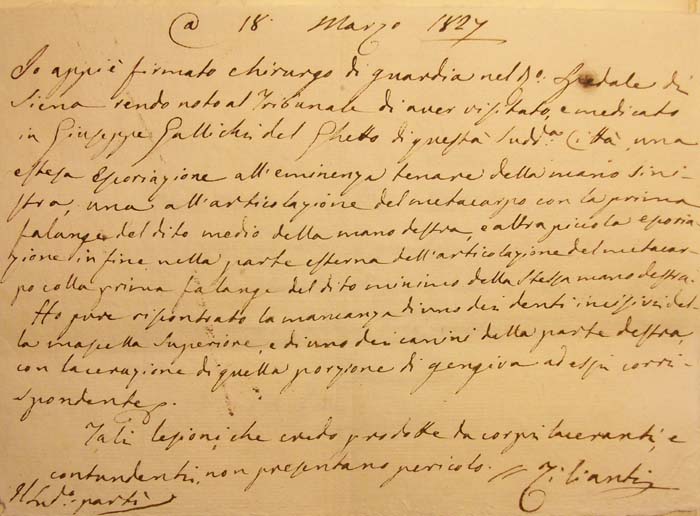 @ 18 Marzo 1827
Io appiè firmato chirurgo di guardia nel Rº: Spedale di
Siena rendo noto al Tribunale di aver visitato, e medicato
in Giuseppe Gallichi del Ghetto di questa Sudd.ª Città, una
estesa esporiazione all'eminenza tenare della mano sini-
stra, una all'articolazione del metacarpo con la prima
falange del dito medio della mano destra, e altra piccola esporia
zione infine nella parte esterna dell'articolazione del metacar-
po colla prima falange del dito minimo della stessa mano destra.
Ho pure riscontrato la mancanza di uno dei denti incisivi del-
la mascella superiore, e di uno dei canini della parte destra,
con lacerazione di quella porzione di gengiva ad essi corri-
spondente.
Tali lesioni, che credo prodotte da corpi laceranti, e
contundenti, non presentano pericolo.
Il Sud.º partì